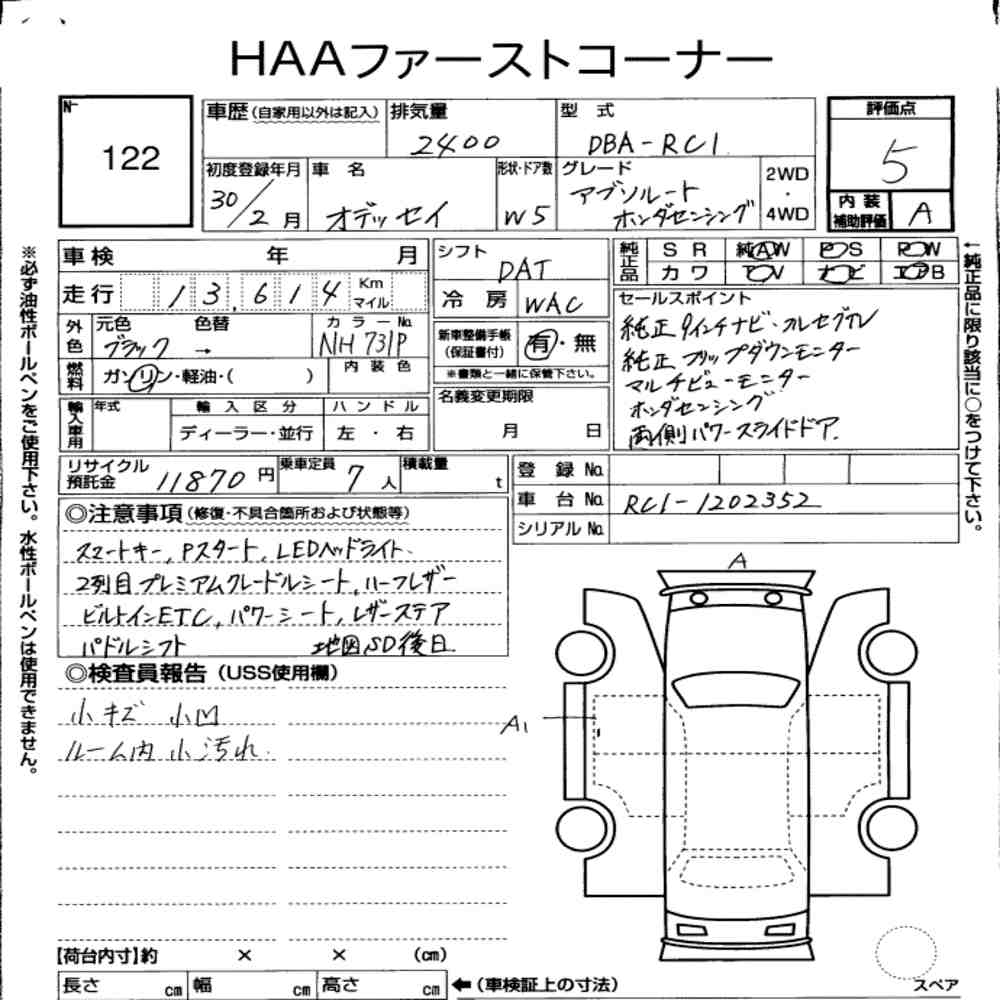 HAAファーストコーナー
No.
122
車歴(自家用以外は記入)
排気量
2400
型 式
DBA-RC1
評価点
5
初度登録年月
30/2月
車 名
オデッセイ
形状・ドア数
W5
グレード
アブソルート
ホンダセンシング
2WD
・
4WD
内 装
補助評価
A
※必ず油性ボールペンをご使用下さい。水性ボールペンは使用できません。
車検 年 月
走行 13,614 Km
マイル
外色
元色 色替
ブラック →
カラーNo.
NH731P
燃料
ガソリン・軽油・( )
内装色
輸入車用
年式
輸入区分
ディーラー・並行
ハンドル
左・右
シフト
DAT
冷房
WAC
新車整備手帳
(保証書付)
有・無
※書類と一緒に保管下さい。
名義変更期限
月 日
純正品
SR
純AW
PS
PW
カワ
TV
ナビ
エアB
セールスポイント
純正9インチナビ・フルセグTV
純正フリップダウンモニター
マルチビューモニター
ホンダセンシング
両側パワースライドドア
←純正品に限り該当に○をつけて下さい。
リサイクル
預託金
11870円
乗車定員
7人
積載量
t
登録No.
車台No.
RC1-1202352
シリアルNo.
◎注意事項(修復・不具合箇所および状態等)
スマートキー, Pスタート, LEDヘッドライト
2列目プレミアムクレードルシート, ハーフレザー
ビルトインETC, パワーシート, レザーステア
パドルシフト 地図SD後日
◎検査員報告(USS使用欄)
小キズ 小凹
ルーム内 小汚れ
A
A1
【荷台内寸】約 × × (cm)
長さ cm
幅 cm
高さ cm
←(車検証上の寸法)
スペア